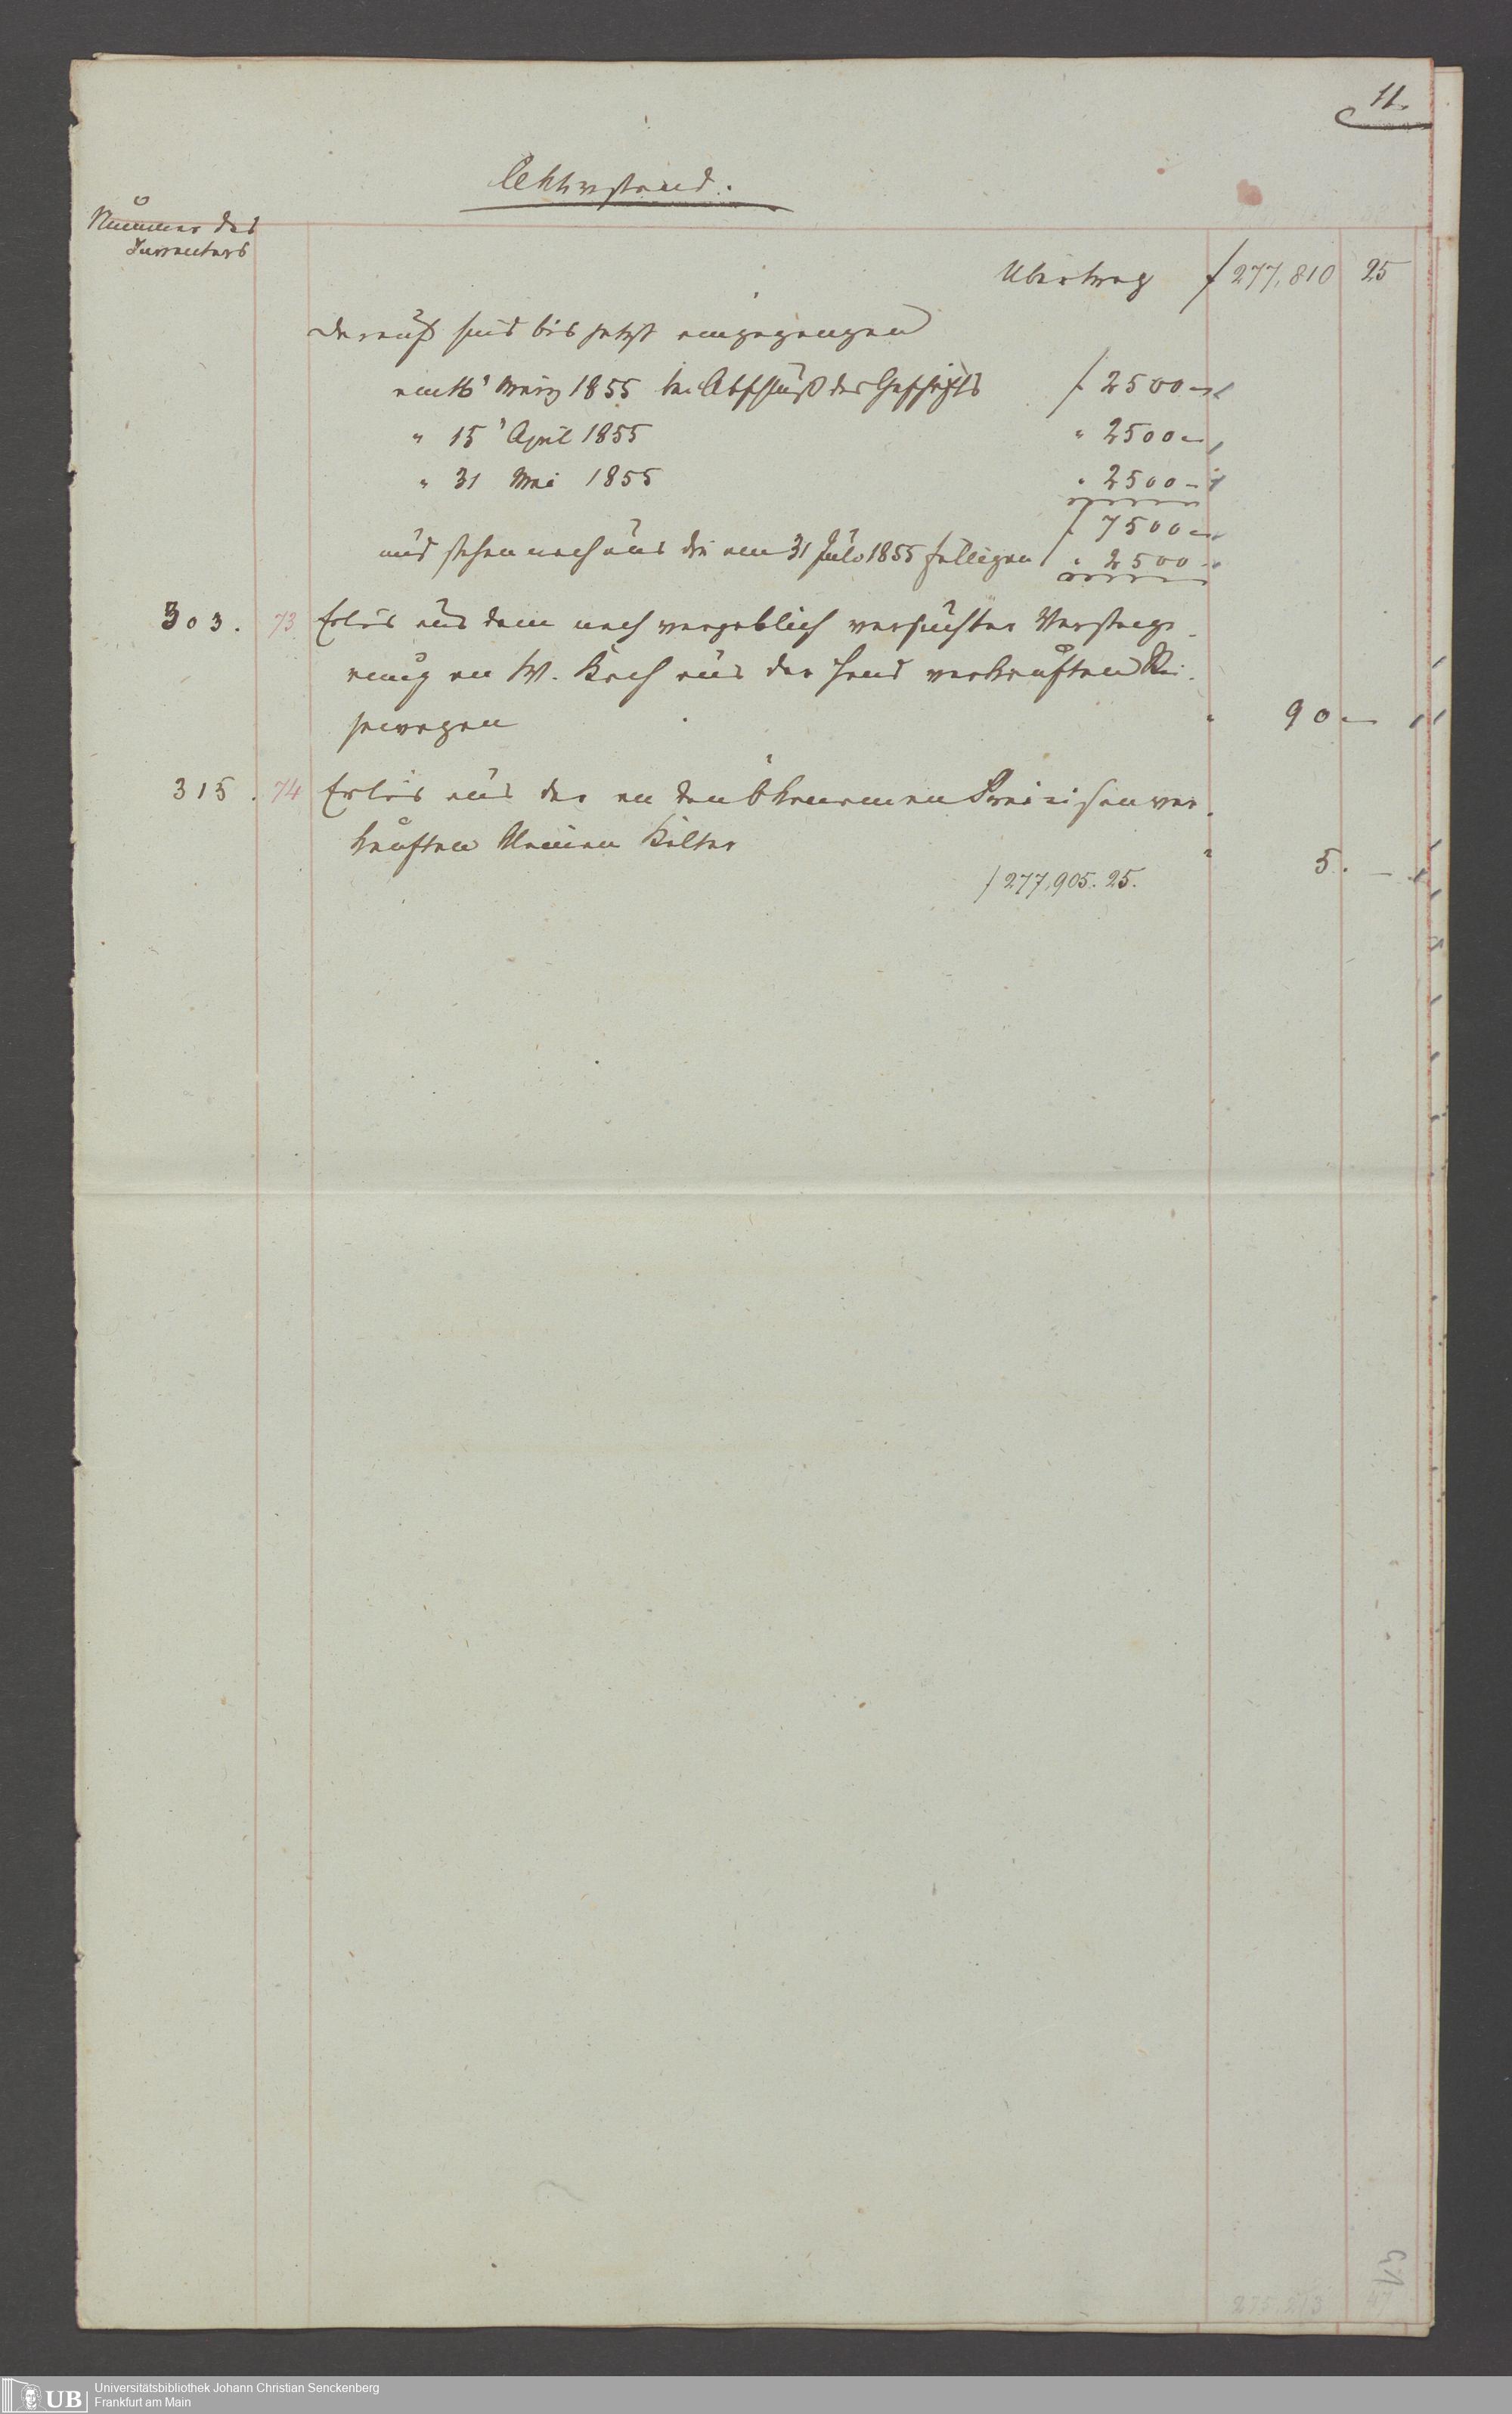 11.
Activstand.
Nummer des
Inventars
Übertrag f 277,810 25
Darauf sind bis jetzt eingegangen
am 16' März 1855 bei Abschluß des Geschäfts f 2500 —
" 15' April 1855 " 2500 —
" 31 Mai 1855 " 2500 —
f 7500 —
und stehen noch aus die am 31 Juli 1855 fälligen " 2500 —
303. 73 Erlös aus dem nach vergeblich versuchter Versteige-
rung an W. Koch aus der Hand verkauften Rei-
sewagen " 90 —
315. 74 Erlös aus der an den Ökonomen ver-
kauften kleinen Kelter " 5. —
f 277,905. 25.
UB Universitätsbibliothek Johann Christian Senckenberg
Frankfurt am Main